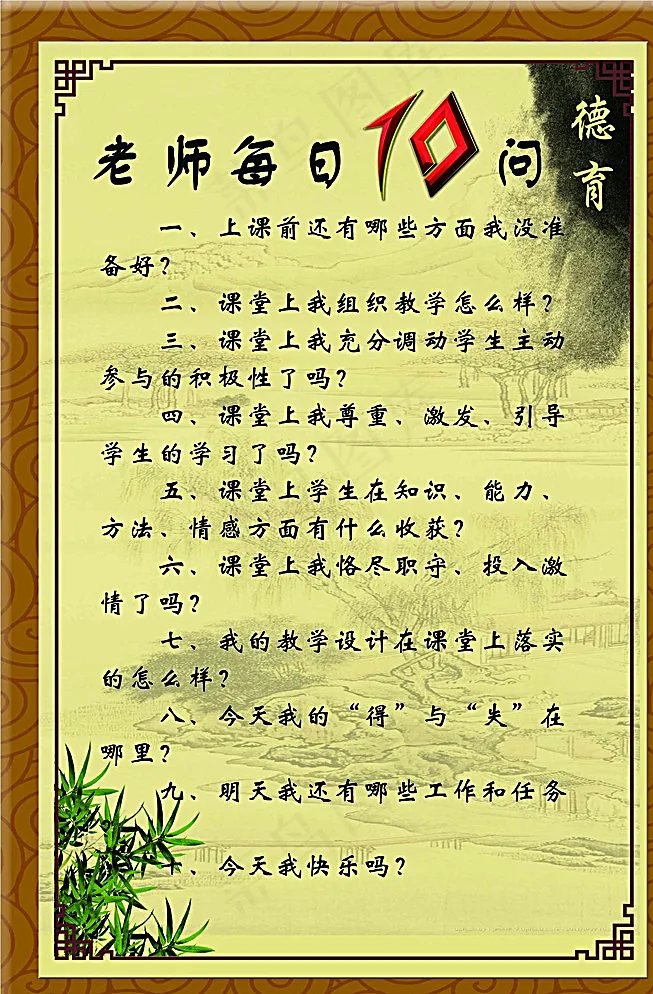 老师每日10问
德育
一、上课前还有哪些方面我没准
备好？
二、课堂上我组织教学怎么样？
三、课堂上我充分调动学生主动
参与的积极性了吗？
四、课堂上我尊重、激发、引导
学生的学习了吗？
五、课堂上学生在知识、能力、
方法、情感方面有什么收获？
六、课堂上我恪尽职守、投入激
情了吗？
七、我的教学设计在课堂上落实
的怎么样？
八、今天我的“得”与“失”在
哪里？
九、明天我还有哪些工作和任务
十、今天我快乐吗？